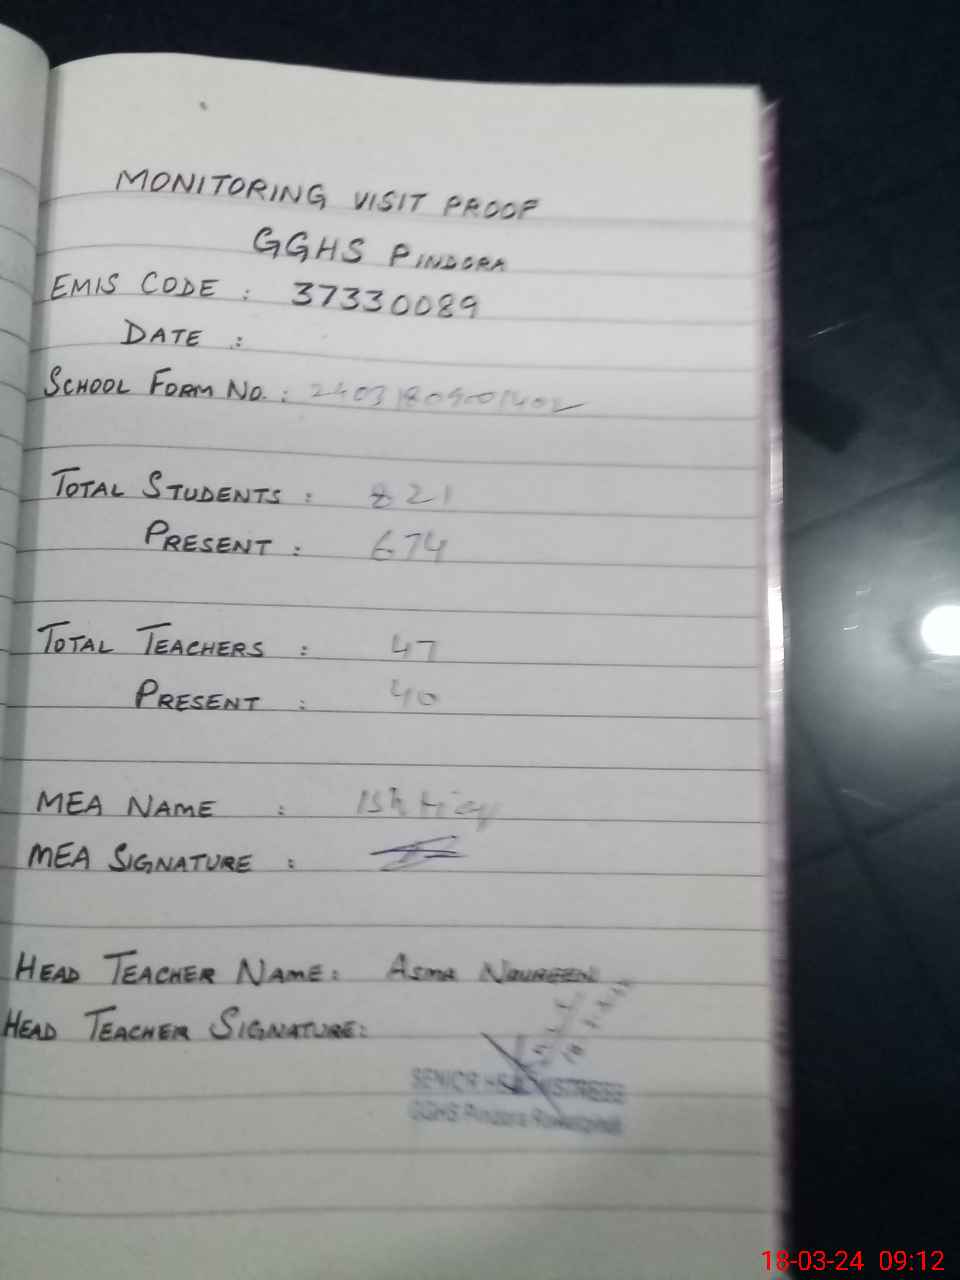 MONITORING VISIT PROOF
GGHS PINDORA
EMIS CODE : 37330089
DATE :
SCHOOL FORM NO. :
TOTAL STUDENTS : 821
PRESENT : 674
TOTAL TEACHERS : 47
PRESENT : 40
MEA NAME : Ishtiaq
MEA SIGNATURE :
HEAD TEACHER NAME: ASMA NOUREEN
HEAD TEACHER SIGNATURE:
SENIOR HEADMISTRESS
GGHS Pindora Rawalpindi
18-03-24 09:12